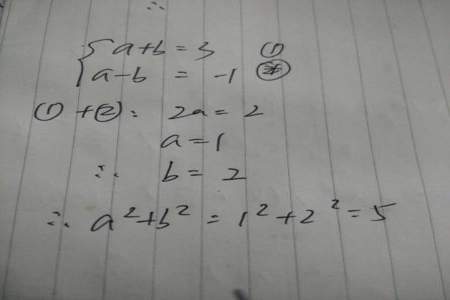 ∴
{ a+b = 3 ①
a-b = -1 ②
① + ②: 2a = 2
a = 1
∴ b = 2
∴ a²+b² = 1²+2² = 5